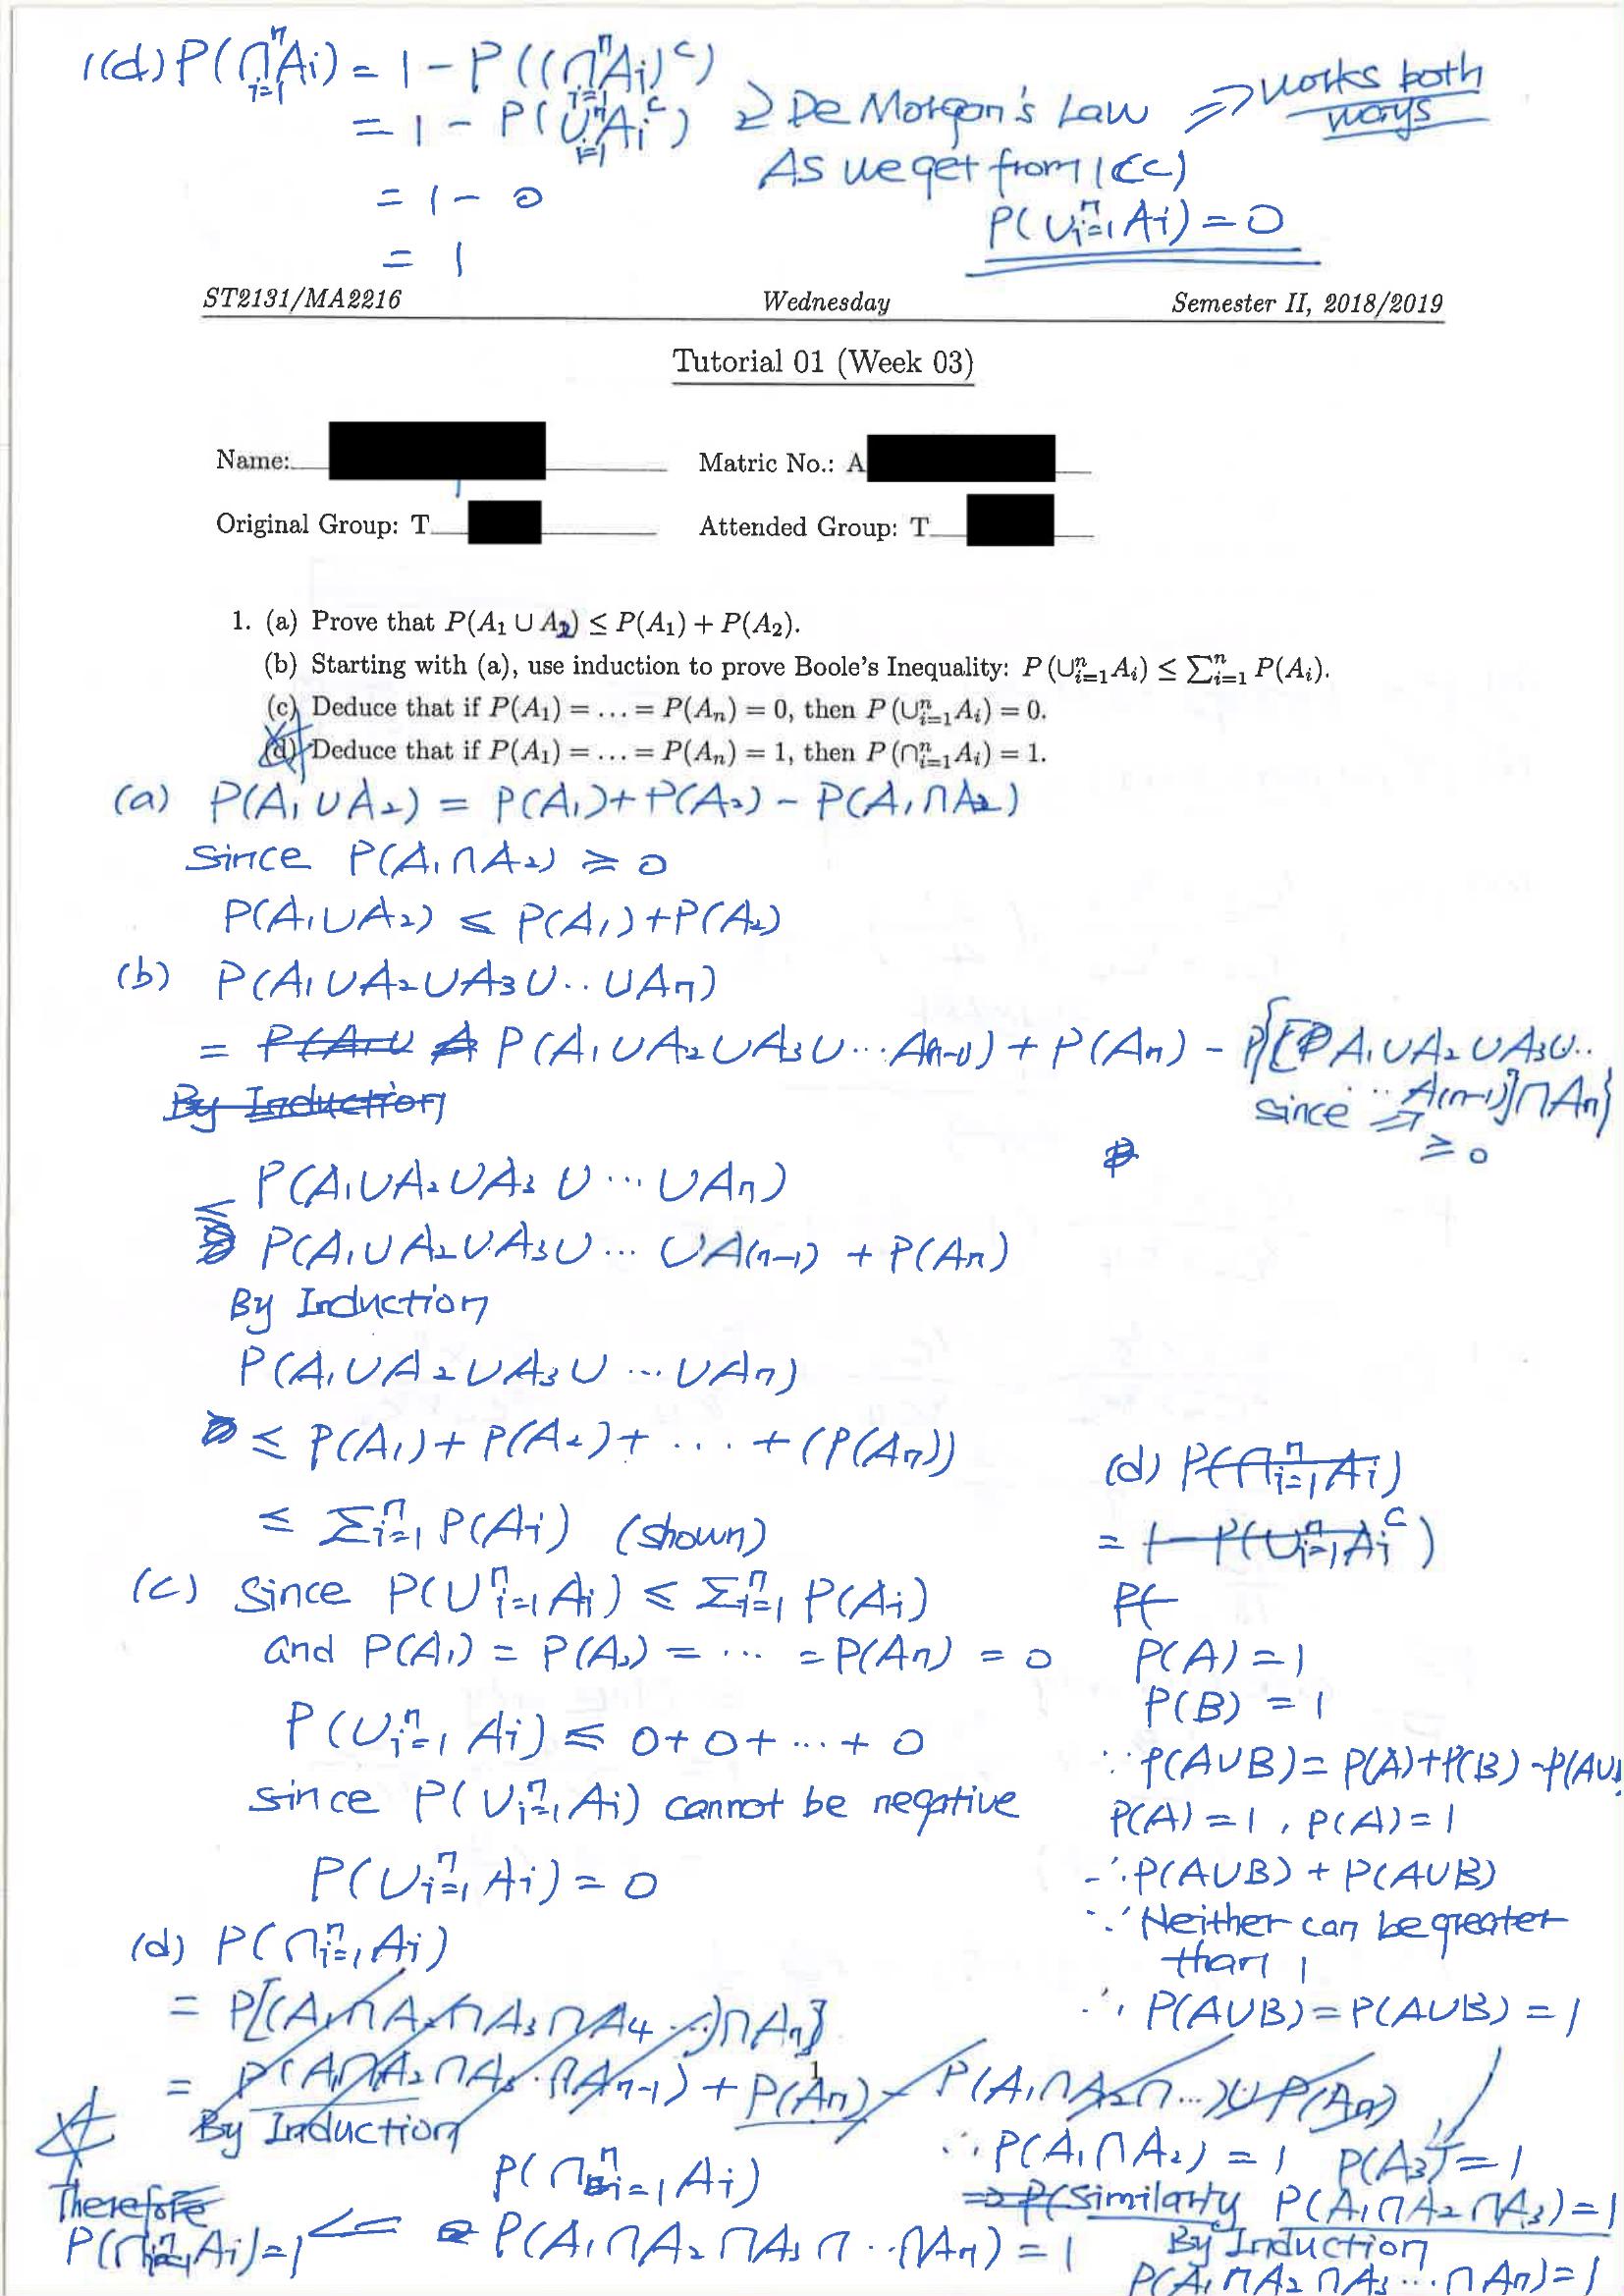 1(d) P(∩ⁿᵢ₌₁Ai) = 1 - P((∩ⁿᵢ₌₁Ai)ᶜ)
= 1 - P(∪ⁿᵢ₌₁Aiᶜ) De Morgan's Law ⇒ works both ways
= 1 - 0 As we get from 1(c)
= 1 P(∪ⁿᵢ₌₁Ai) = 0
ST2131/MA2216 Wednesday Semester II, 2018/2019
Tutorial 01 (Week 03)
Name: Matric No.: A
Original Group: T Attended Group: T
1. (a) Prove that P(A₁ ∪ A₂) ≤ P(A₁) + P(A₂).
(b) Starting with (a), use induction to prove Boole's Inequality: P(∪ⁿᵢ₌₁Aᵢ) ≤ ∑ⁿᵢ₌₁ P(Aᵢ).
(c) Deduce that if P(A₁) = ... = P(Aₙ) = 0, then P(∪ⁿᵢ₌₁Aᵢ) = 0.
(d) Deduce that if P(A₁) = ... = P(Aₙ) = 1, then P(∩ⁿᵢ₌₁Aᵢ) = 1.
(a) P(A₁∪A₂) = P(A₁)+P(A₂) - P(A₁∩A₂)
Since P(A₁∩A₂) ≥ 0
P(A₁∪A₂) ≤ P(A₁)+P(A₂)
(b) P(A₁∪A₂∪A₃∪..∪Aₙ)
= P(A₁∪A₂∪A₃∪...A(n-1)) + P(Aₙ) - P{[A₁∪A₂∪A₃∪..
..A(n-1)]∩Aₙ}
By Induction since ⇒ ≥ 0
P(A₁∪A₂∪A₃∪...∪Aₙ)
≤ P(A₁∪A₂∪A₃∪...∪A(n-1) + P(Aₙ)
By Induction
P(A₁∪A₂∪A₃∪...∪Aₙ)
≤ P(A₁)+P(A₂)+...+(P(Aₙ))
≤ ∑ⁿᵢ₌₁ P(Ai) (shown)
(c) Since P(∪ⁿᵢ₌₁Ai) ≤ ∑ⁿᵢ₌₁ P(Ai)
and P(A₁) = P(A₂) = ... = P(Aₙ) = 0
P(∪ⁿᵢ₌₁ Ai) ≤ 0+0+...+0
since P(∪ⁿᵢ₌₁Ai) cannot be negative
P(∪ⁿᵢ₌₁Ai) = 0
(d) P(∩ⁿᵢ₌₁Ai)
= P[(A₁∩A₂∩A₃∩A₄...)∩Aₙ]
= P(A₁∩A₂∩A₃.∩Aₙ₋₁) + P(Aₙ) - P(A₁∩A₂∩...)∪P(Aₙ)
By Induction
(d) P(∩ⁿᵢ₌₁Ai)
= 1 - P(∪ⁿᵢ₌₁Aiᶜ)
P(
P(A) = 1
P(B) = 1
∵ P(A∪B) = P(A)+P(B) -P(A∪
P(A) = 1, P(A) = 1
∴ P(A∪B) + P(A∪B)
∵ Neither can be greater
than 1
∴ P(A∪B) = P(A∪B) = 1
∴ P(A₁∩A₂) = 1 P(A₃) = 1
⇒ P( Similarly P(A₁∩A₂∩A₃) = 1
By Induction
P(A₁∩A₂∩A₃...∩Aₙ) = 1
P(∩ᵢ₌₁ⁿ Ai)
= P(A₁∩A₂∩A₃∩..∩Aₙ) = 1
Therefore
P(∩ⁿᵢ₌₁Ai) = 1